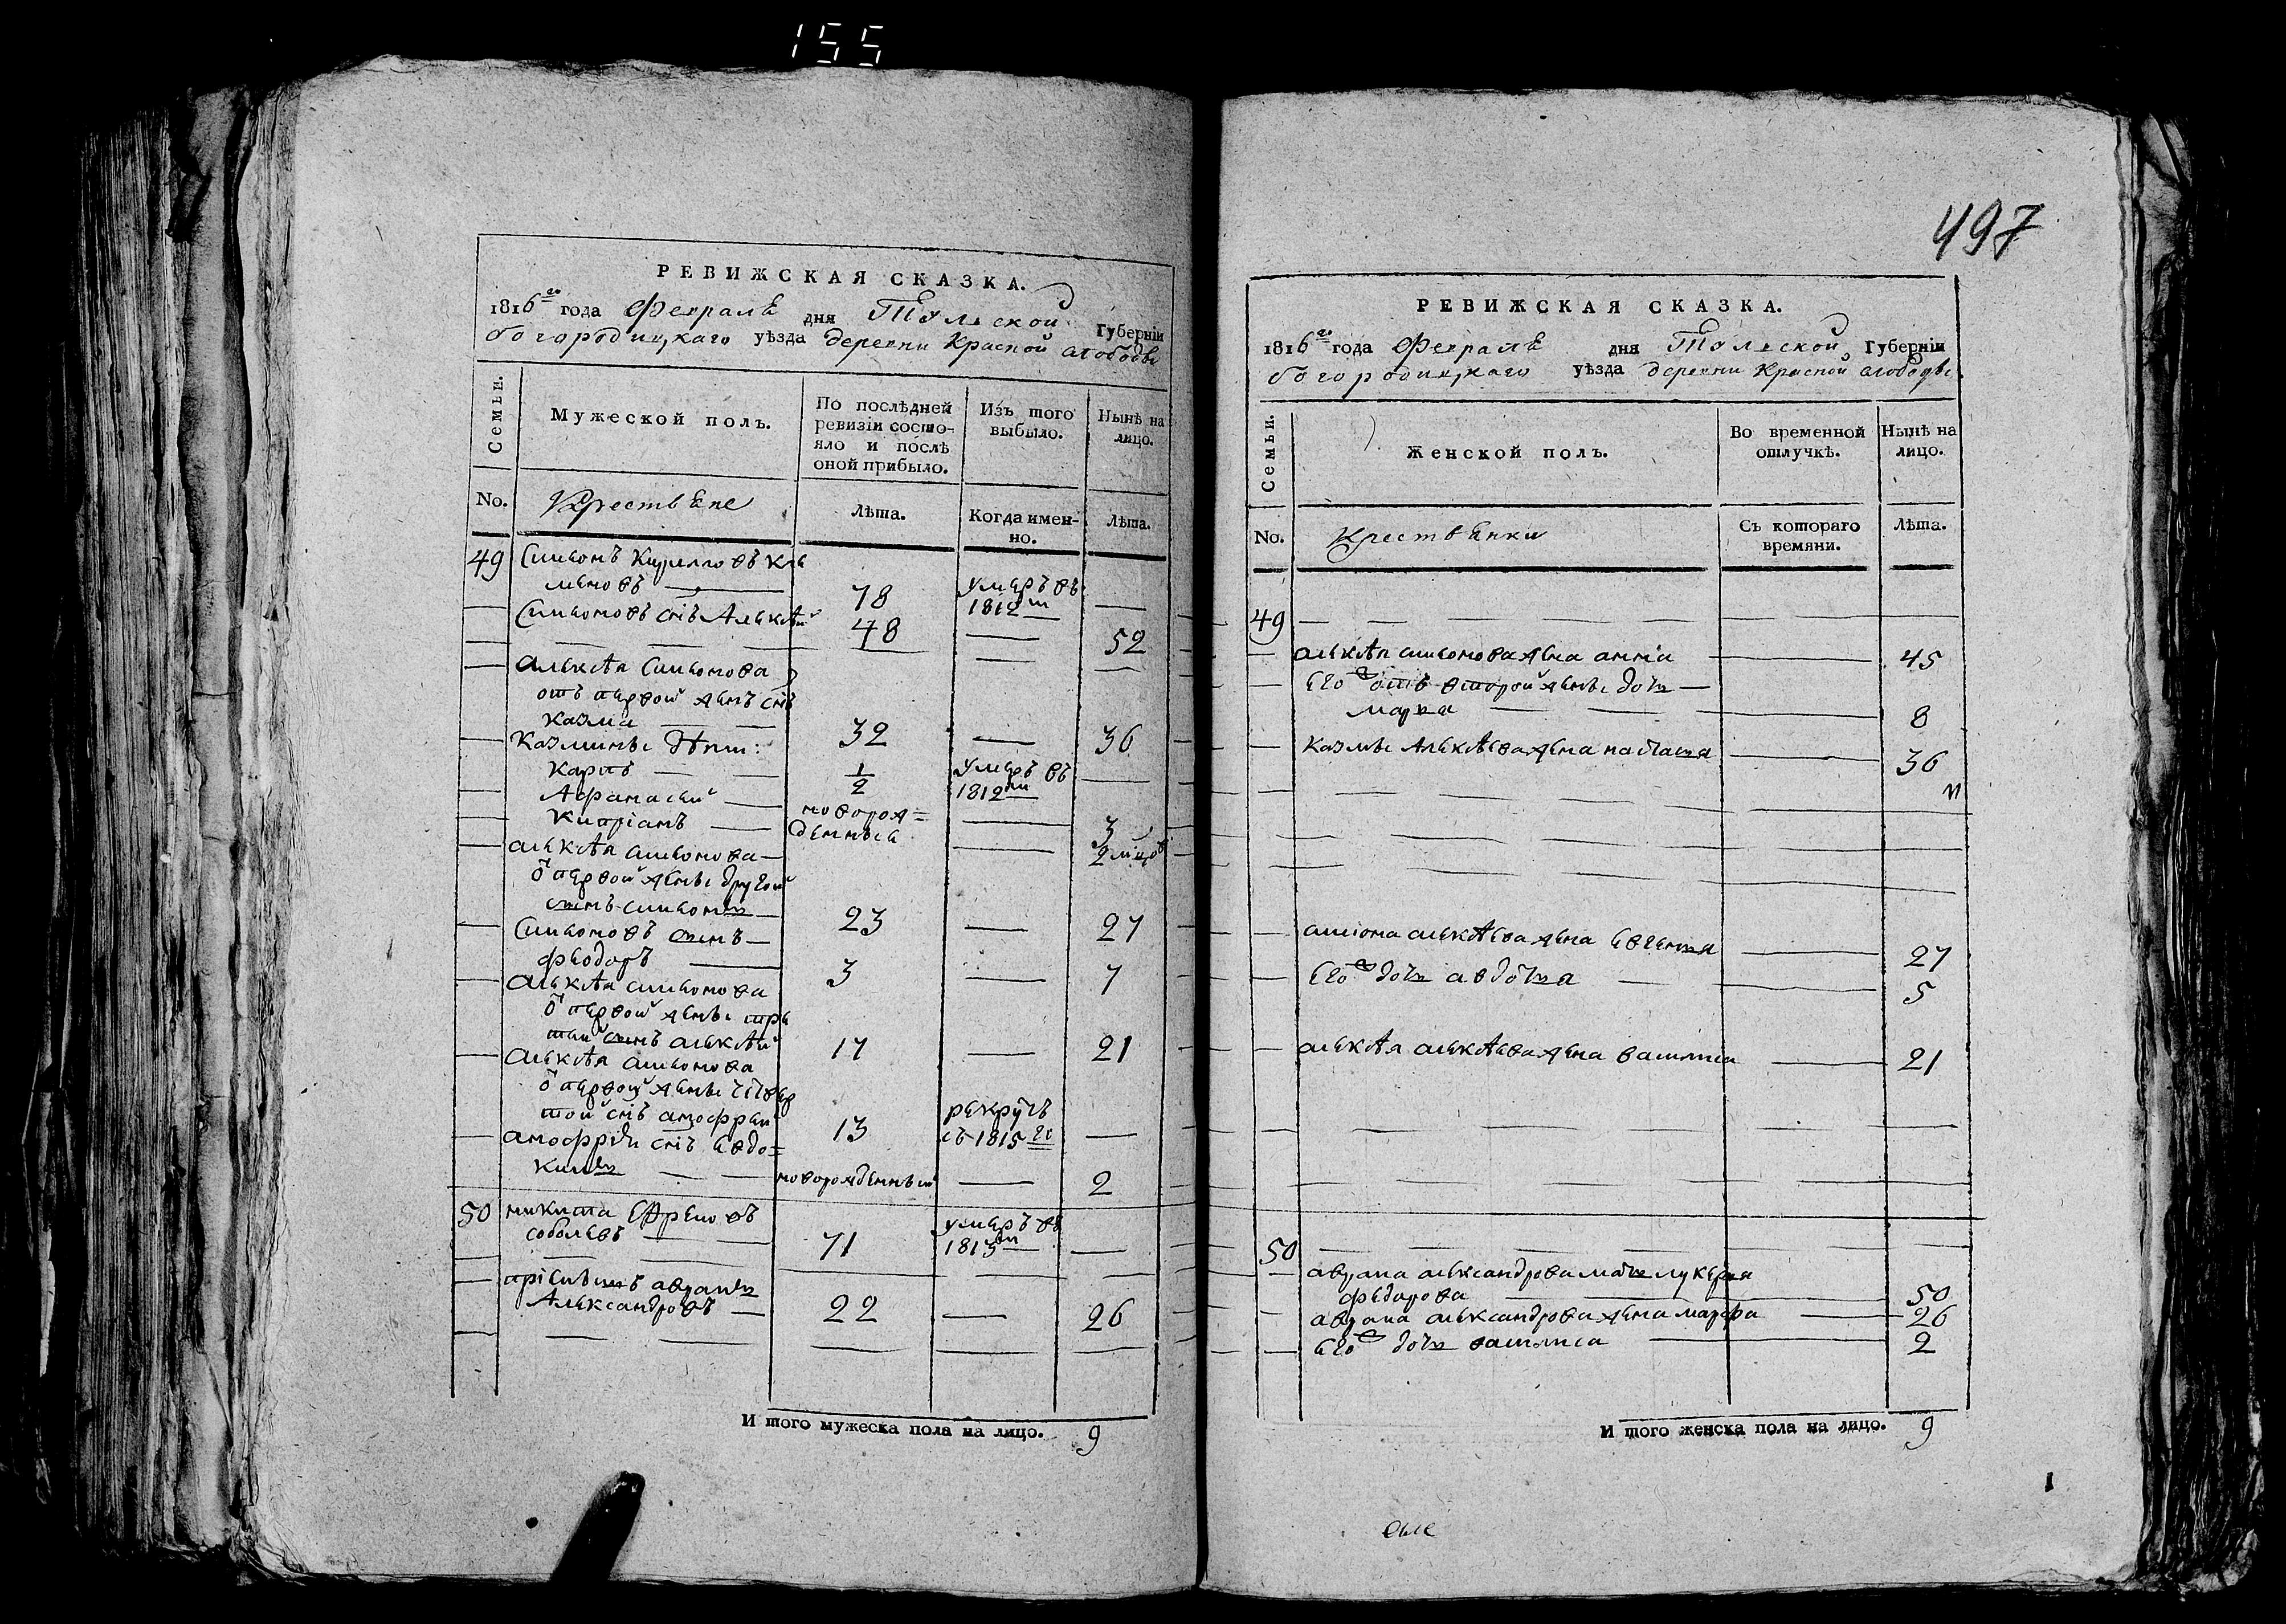 155
РЕВИЖСКАЯ СКАЗКА.
1816го года Февраля дня Тульской Губерніи
богородицкаго уѣзда деревни Красной слободы
Семьи.
Мужеской полъ.
По послѣдней ревизіи состо-
яло и послѣ оной прибыло.
Изъ того выбыло.
Нынѣ на лицо.
No.
Крестьяне
Лѣта.
Когда имен-
но.
Лѣта.
49 Симионъ Кириловъ Кле
меновъ 78 умеръ въ 1812м
Симионовъ снъ Алексѣй 48 52
алексѣя симионова
отъ первой женъ снъ
казма 32 36
казмины дѣти:
карпъ 1/2 умеръ въ 1812м
Афанасий новорож= 3
Киприанъ денныя 2 мцов
алексѣя симионова
о первой жены другой
сынъ симионъ 23 27
Симионовъ сынъ
феодоръ 3 7
алексѣя симионова
о первой жены тре
тий сынъ алексѣй 17 21
алексѣя симионова
о первой жены четвер
той снъ анофрей 13 рекрутъ съ 1815го
анофрия снъ евдо=
кимъ новорожденный 2
50 никита Ефремовъ
соболевъ 71 умеръ въ 1813м
приемышъ аврамъ
Александровъ 22 26
И того мужеска пола на лицо. 9
497
РЕВИЖСКАЯ СКАЗКА.
1816го года Февраля дня Тульской Губерніи
богородицкаго уѣзда деревни Красной слободы
Семьи.
Женской полъ.
Во временной отлучкѣ.
Нынѣ на лицо.
No.
Крестьянки
Съ котораго времяни.
Лѣта.
49
алексѣя симионова жена анна 45
его отъ второй жены дочь
марья 8
казмы Алексѣева жена настасья 36
симиона алексѣева жена евгения 27
его дочь авдотья 5
алексѣя алексѣева жена василиса 21
50
аврама александрова мать лукерья
федорова 50
аврама александрова жена марфа 26
его дочь василиса 2
И того женска пола на лицо. 9